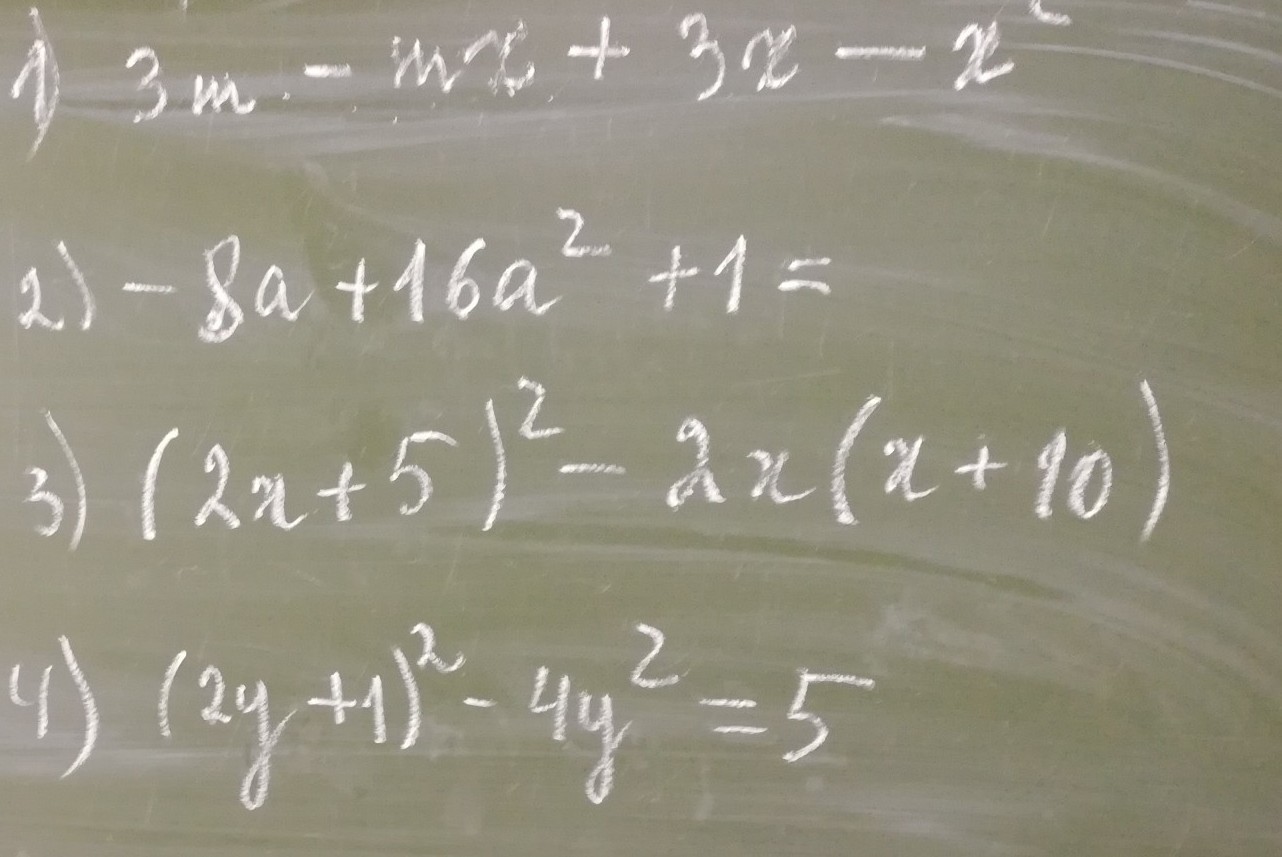 1) 3m - mx + 3x - x²
2) -8a+16a² +1=
3) (2x+5)² - 2x(x+10)
4) (2y+1)² - 4y² = 5